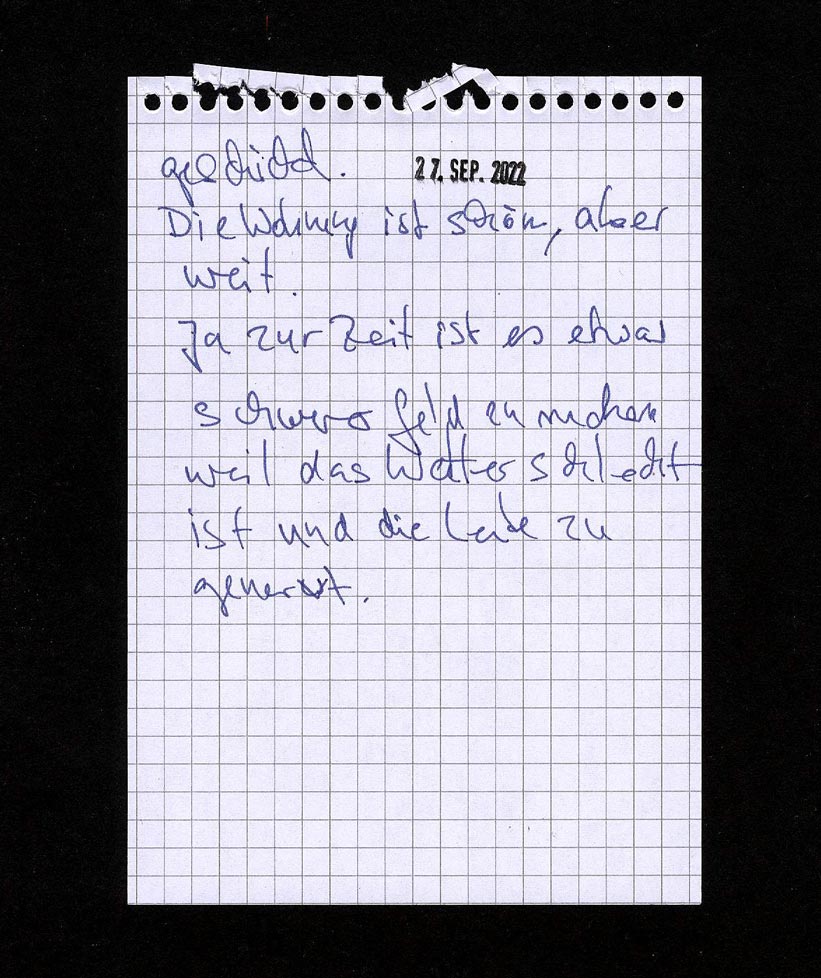 geschickt. 27. SEP. 2022
Die Wohnung ist schön, aber
weit.
Ja zur Zeit ist es etwas
schwer Geld zu machen
weil das Wetter schlecht
ist und die Leute zu
genervt.